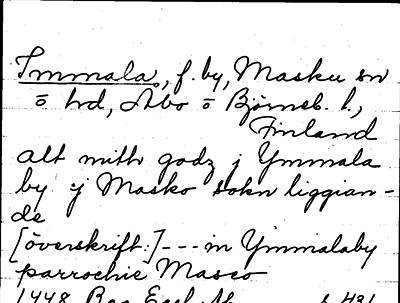 Immala, f. by, Masku sn
o hd, Åbo o Björneb. l.,
Finland
alt mith godz j Ymmala
by j Masko sokn liggian-
de
[överskrift:]--- in Ymmalaby
parrochie Masco
1448 Reg. Eccl. Ab. s. 431